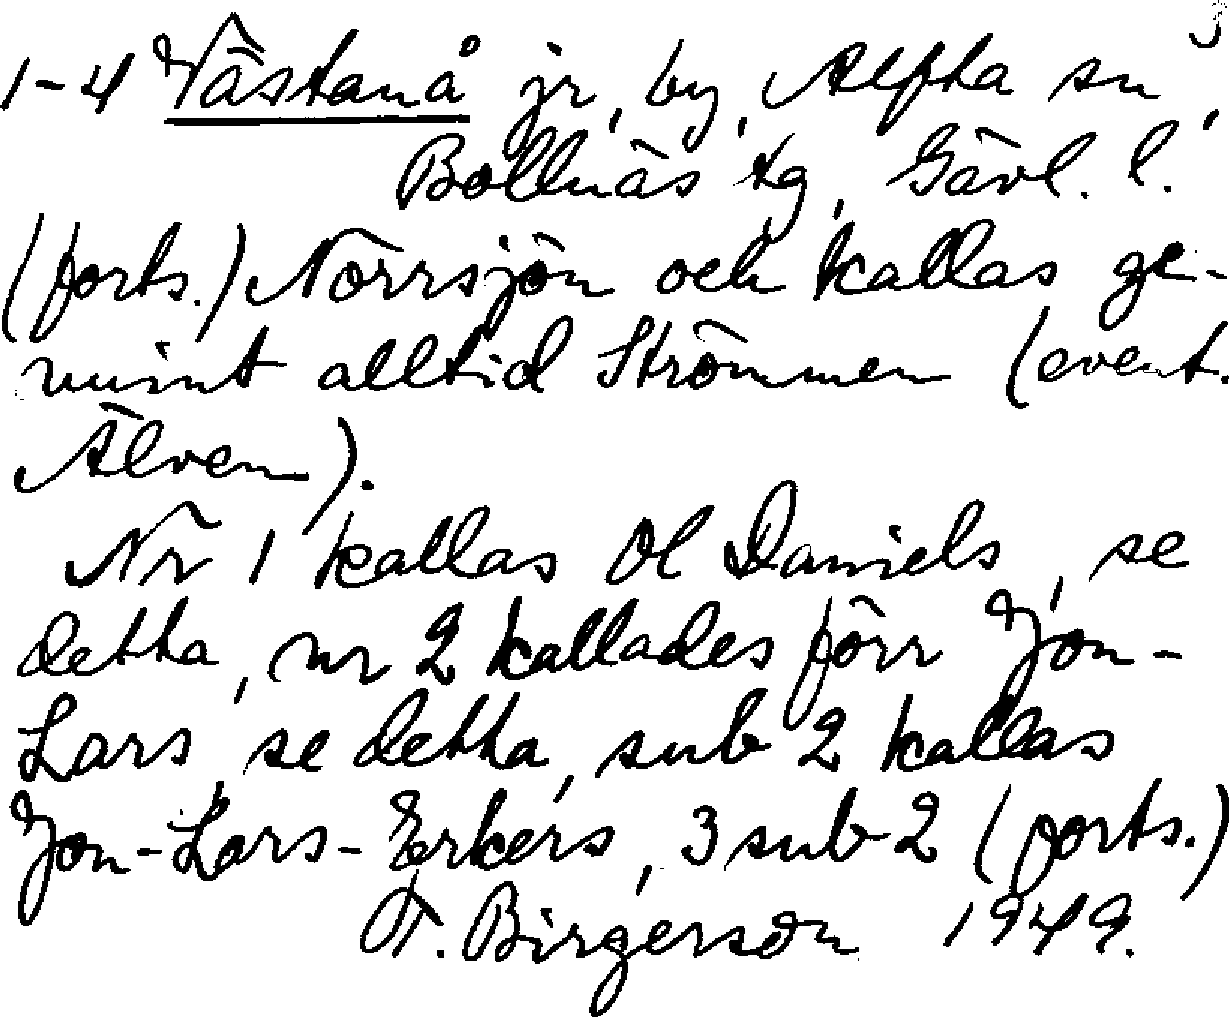 1-4 Västanå jr, by, Alfta sn,
Bollnäs tg, Gävl. l.
(forts.) Norrsjön och kallas ge-
mint alltid Strömmen (event.
Älven).
Nr 1 kallas Ol Daniels, se
detta, nr 2 kallades förr Jon-
Lars, se detta, sub 2 kallas
Jon-Lars-Erkers, 3 sub 2 (forts.)
F. Birgerson 1949.